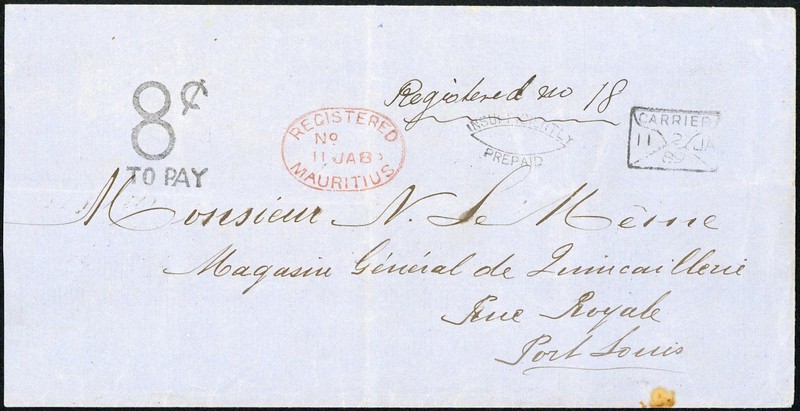 Registered no 18
8¢
TO PAY
REGISTERED
No
11 JA 8
MAURITIUS
INSUFFICIENTLY
PREPAID
CARRIER
11 2 JA
89
Monsieur N. Le Même
Magasin Général de Quincaillerie
Rue Royale
Port Louis